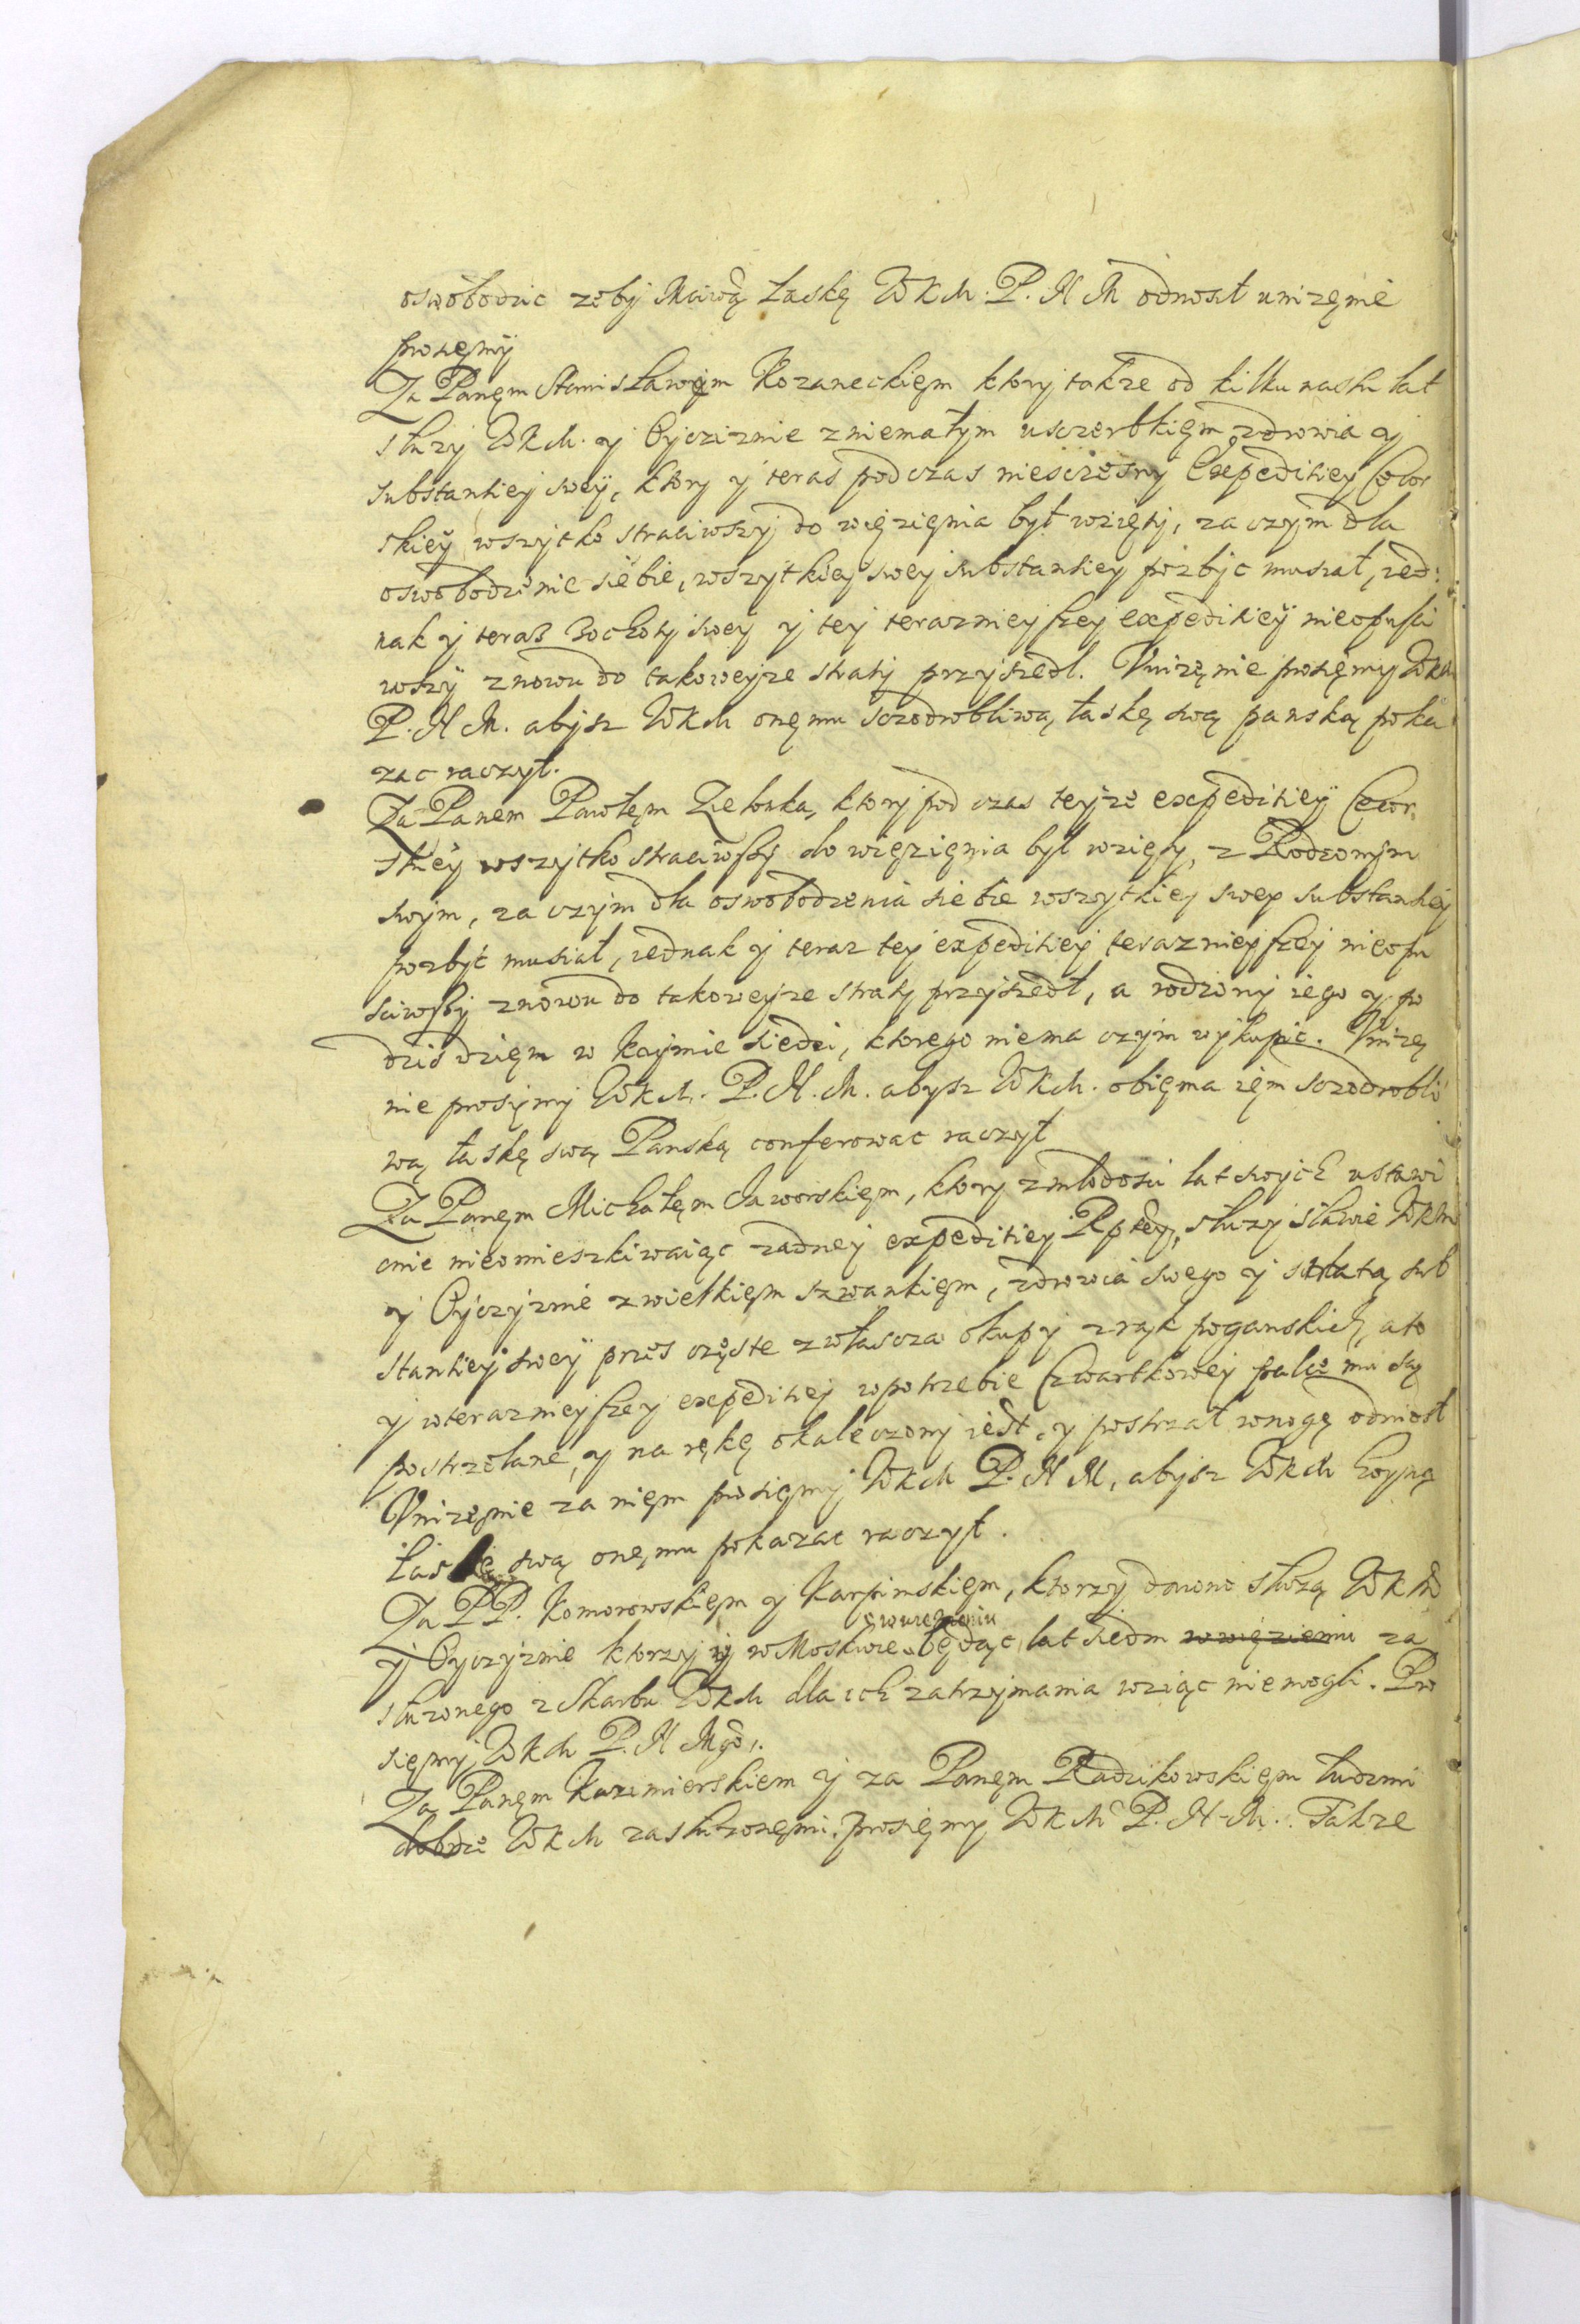 oswobodzic zeby Msciwą Łaskę WKM. P. N M odnosił unizęnie
prosięmy
Za Panęm Stanisławęm Kozaneckięm ktory takze od kilku nastu lat
słuzy WKM. y Oycziznie zniemałym usczerbkięm zdrowia y
substantiey swey, ktory y teras podczas niesczesny Expeditiey Cecor
skiey wszytko straciwszy do więzięnia był wzięty, za czym dla
oswobodzenie siebie, wszytkiey swey substantiey pozbyc musiał, ied:
nak y teraz zochoty swey y tey teraznieyszey expeditiey nieopusci
wszy znowu do takoweyze straty przyszedl. Vnizęnie prosięmy WKM
P. N M. abysz WKM onęmu sczodrobliwą łaskę swą panską poka
zac raczył.
Za Panem Pawołęm Zielonką, ktory pod czas teyze expeditiey Cecor
skiey wszytko straciwszy do więzięnia był wzięty, z Rodzonym
swym, za czym dla oswobodzenia siebie wszytkiey swey substantiey
pozbyć musiał, iednak y teraz tey expeditiey teraznieyszey nieopu
sciwszy znowu do takoweyze straty przyszedł, a rodzony iego y po
dzis dzięn w Krymie siedzi, ktorego niema czym wykupic. Vnizę
nie prosięmy WKM. P. N. M. abysz WKM. obięma ięm sczodrobli
wą łaskę swą Panską conferowac raczył
Za Panęm Michałęm Jaworskięm, ktory zmłodosci lat swych ustawi
cnie nieomieszkiwaiąc zadney expeditiey Rptey, słuzy sławie WKM
y Oyczyznie zwielkięm szwankięm, zdrowia swego y stratą sub
stantiey swey przes częste zwłascza okupy zrąk poganskich, a to
y wteraznieyszey expeditiey wpotrzebie Czwartkowey palce mu są
postrzelane, y na rękę okaleczony iest, y postrzał wnogę odniosł
Vnizęnie za nięm prosięmy WKM P. N M, abysz WKM hoyną
łaskę swą onęmu pokazac raczył.
Za PP. Komorowskięm y Karpinskięm, ktorzy dawno słuzą WKM
wwięzieniu
y Oyczyznie ktorzy y wMoskwie będąc lat siedm wwięzieniu za
słuzonego z Skarbu WKM dla ich zatrzymania wziąc niemogli. Pro
sięmy WKM P. N Mgo.
Za Panęm Kazimierskiem y za Panęm Radzikowskięm ludzmi
dobrze WKM zasłuzonęmi. prosięmy WKM P. N. M. Takze